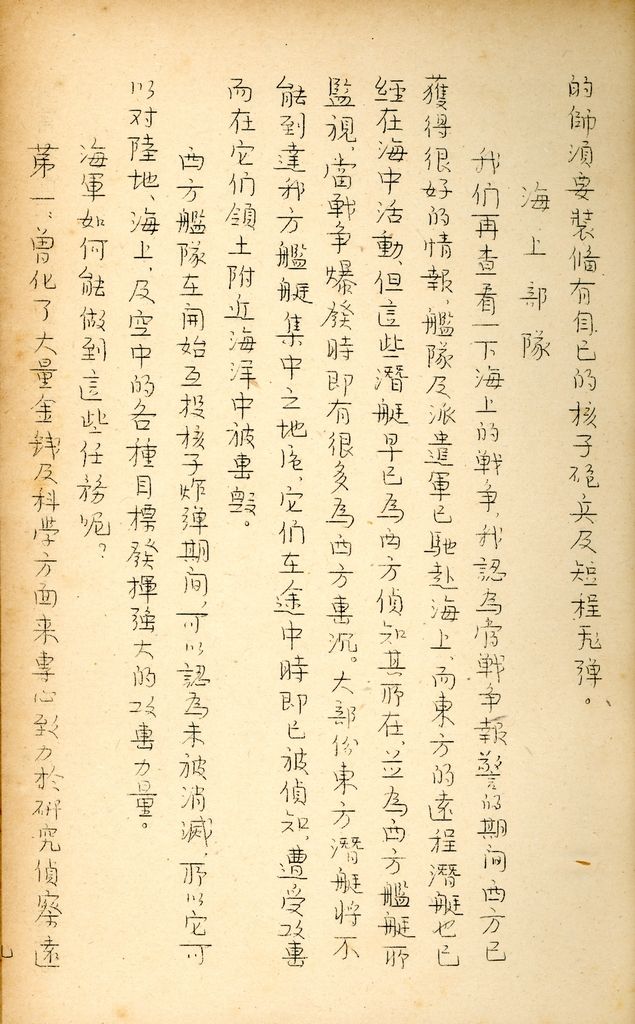 的師須要裝備有自己的核子砲兵及短程飛弹。
海上部隊
我们再查看一下海上的戰争，我認為當戰争報警的期间西方已
獲得很好的情報，艦隊及派遣軍已馳赴海上，而東方的遠程潛艇也已
經在海中活動，但這些潛艇早已為西方偵知其所在，並為西方艦艇所
監視，當戰争爆發時即有很多為西方擊沉。大部份東方潛艇將不
能到達我方艦艇集中之地危，它们在途中時即已被偵知，遭受攻擊
而在它们領土附近海洋中被擊毀。
西方艦隊在開始互投核子炸弹期间，可以認為未被消滅，所以它可
以对陸地、海上，及空中的各種目標發揮强大的攻擊力量。
海軍如何能做到這些任務呢？
第一：曾化了大量金錢及科学方面来專心致力於研究偵察遠
七